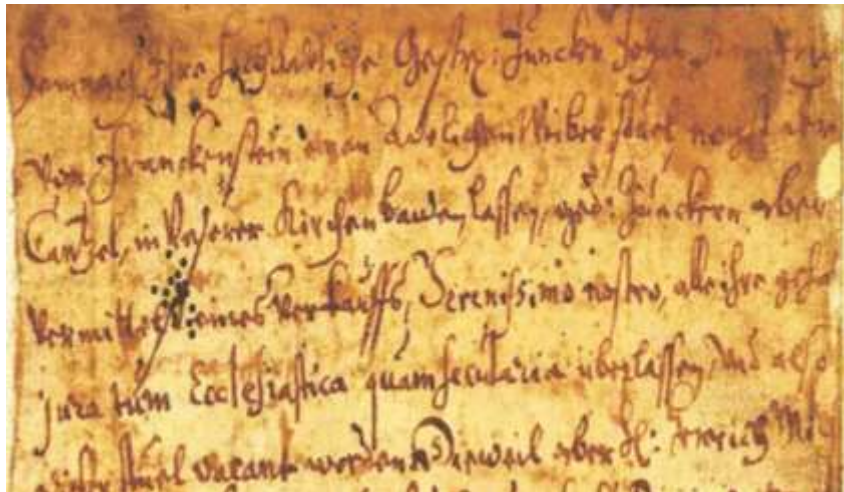 Demnach Ihre hochadliche Gestr: Juncker Johan
von Franckenstein einen Adelichen Weiber stuel, nechst
Cantzel, in unserer Kirchen bauen lassen, ged: Junckern aber
vermittels eines verkauffs, Serenissimo nostro, alle ihre
jura tum Ecclesiastica quam secularia überlassen, und also
stuel vacant worden. Dieweil aber H: